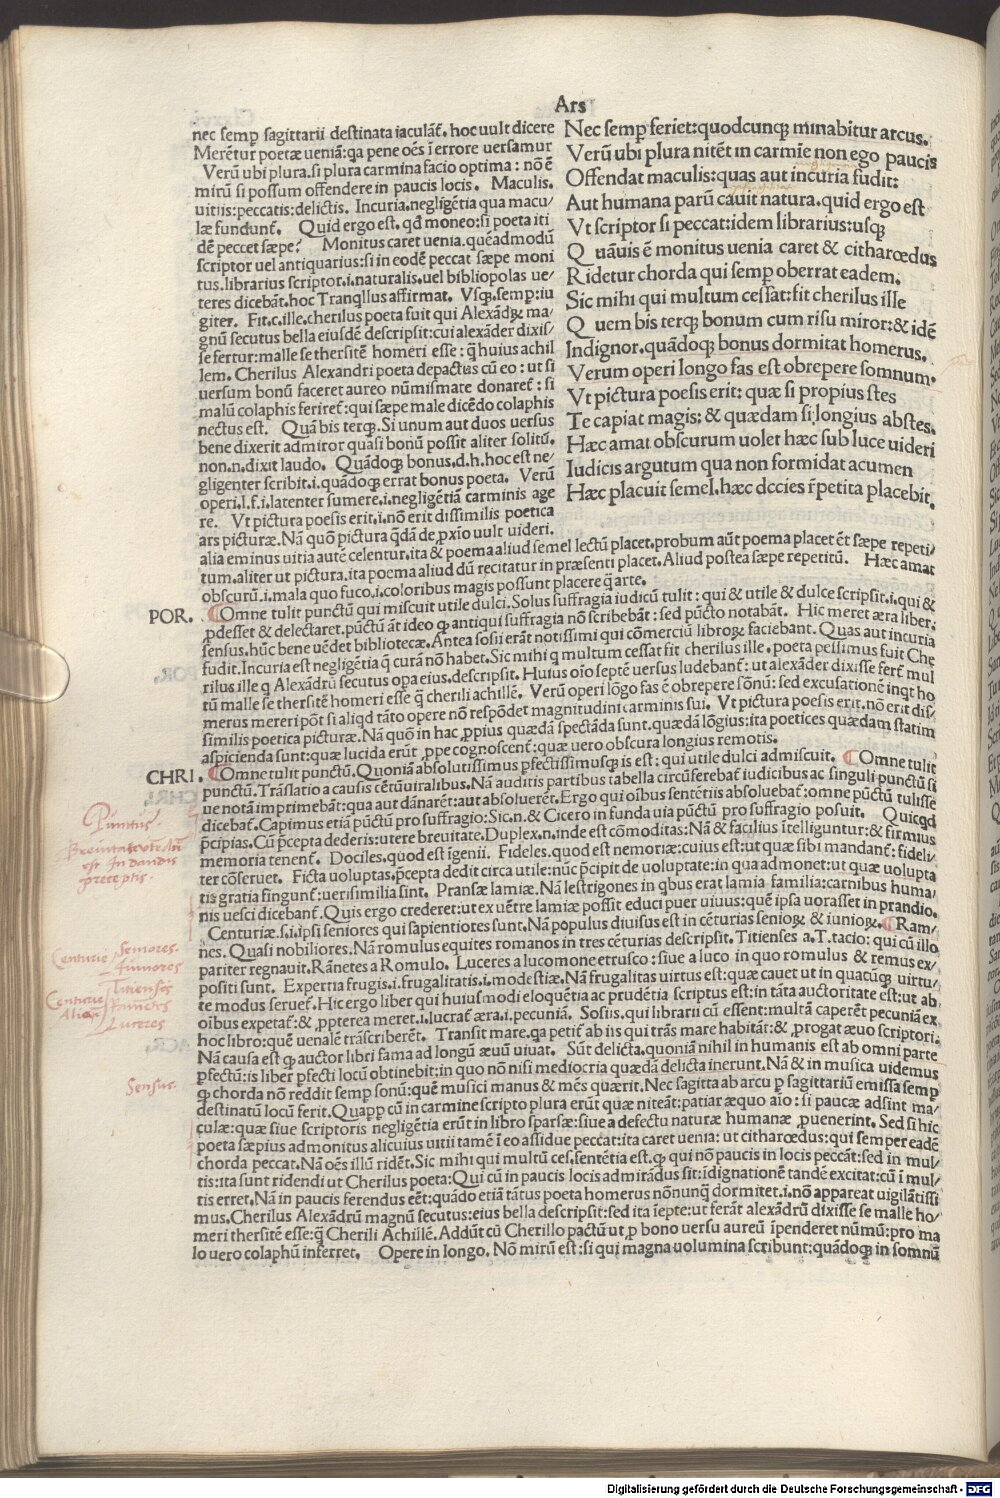 Ars
nec semꝑ sagittarii destinata iaculãt̃. hoc uult dicere
Merẽt̃ur poetæ ueniã: qa pene oẽs ĩ errore uersamur
Verũ ubi plura. si plura carmina facio optima: nõ ẽ
mirũ si possum offendere in paucis locis. Maculis.
uitiis: peccatis: delictis. Incuria. negligẽtia qua macu/
læ fundunt̃. Quid ergo est. qd̃ moneo: si poeta iti
dẽ peccet sæpe? Monitus caret uenia. quẽadmodũ
scriptor uel antiquarius: si in eodẽ peccat sæpe moni
tus. librarius scriptor. i. naturalis. uel bibliopolas ue/
teres dicebãt. hoc Tranqllus affirmat. Vsqꝫ. semꝑ: iu
giter. Fit. c. ille. cherilus poeta fuit qui Alexãdꝝ ma/
gnũ secutus bella eiusdẽ descripsit: cui alexãder dixis/
se fertur: malle se thersitẽ homeri esse: q̃ huius achil
lem. Cherilus Alexandri poeta depactus cũ eo: ut si
uersum bonũ faceret aureo nũmismate donaret̃: si
malũ colaphis feriret̃: qui sæpe male dicẽdo colaphis
nectus est. Quã bis terqꝫ. Si unum aut duos uersus
bene dixerit admiror quasi bonũ possit aliter solitũ.
non. n. dixit laudo. Quãdoqꝫ bonus. d. h. hoc est ne/
gligenter scribit. i. quãdoqꝫ errat bonus poeta. Verũ
operi. l. f. i. latenter sumere. i. negligẽtiã carminis age
re. Vt pictura poesis erit. i. nõ erit dissimilis poetica
ars picturæ. Nã quõ pictura q̃dã de ꝓxio uult uideri.
alia eminus uitia autẽ celentur. ita & poema aliud semel lectũ placet. probum aũt poema placet ẽt sæpe repeti/
tum. aliter ut pictura. ita poema aliud dũ recitatur in præsenti placet. Aliud postea sæpe repetitũ. Hæc amat
obscurũ. i. mala quo fuco. i. coloribus magis possunt placere q̃ arte.
Nec semꝑ feriet: quodcunqꝫ minabitur arcus.
Verũ ubi plura nitẽt in carmĩe non ego paucis
Offendat maculis: quas aut incuria fudit:
Aut humana parũ cauit natura. quid ergo est
Vt scriptor si peccat: idem librarius: usqꝫ
Q uãuis ẽ monitus uenia caret & citharœdus
Ridetur chorda qui semꝑ oberrat eadem.
Sic mihi qui multum cessat: fit cherilus ille
Q uem bis terqꝫ bonum cum risu miror: & idẽ
Indignor. quãdoqꝫ bonus dormitat homerus.
Verum operi longo fas est obrepere somnum.
Vt pictura poesis erit: quæ si propius stes
Te capiat magis: & quædam si longius abstes.
Hæc amat obscurum uolet hæc sub luce uideri
Iudicis argutum qua non formidat acumen
Hæc placuit semel. hæc decies ĩpetita placebit.
POR. Omne tulit punctũ qui miscuit utile dulci. Solus suffragia iudicũ tulit: qui & utile & dulce scripsit. i. qui &
ꝓdesset & delectaret. pũctũ ãt ideo qꝫ antiqui suffragia nõ scribebãt: sed pũcto notabãt. Hic meret æra liber.
sensus. hũc bene uẽdet bibliotecæ. Antea sosii erãt notissimi qui cõmerciũ libroꝝ faciebant. Quas aut incuria
fudit. Incuria est negligẽtia q̃ curã nõ habet. Sic mihi q multum cessat fit cherilus ille. poeta pessimus fuit Che
rilus ille q Alexãdrũ secutus opa eius. descripsit. Huius oĩo septẽ uersus ludebant̃: ut alexãder dixisse fert̃ mul
tũ malle se thersitẽ homeri esse q̃ cherili achillẽ. Verũ operi lõgo fas ẽ obrepere sõnũ: sed excusationẽ inqt ho
merus mereri põt si aliqd tãto opere nõ respõdet magnitudini carminis sui. Vt pictura poesis erit. nõ erit dis/
similis poetica picturæ. Nã quõ in hac ꝓpius quædã spectãda sunt. quædã lõgius: ita poetices quædam statim
aspicienda sunt: quæ lucida erũt ꝓpe cognoscent̃: quæ uero obscura longius remotis.
CHRI. Omne tulit punctũ. Quoniã absolutissimus ꝑfectissimusqꝫ is est: qui utile dulci admiscuit. Omne tulit
punctũ. Trãslatio a causis cẽtũuiralibus. Nã auditis partibus tabella circũferebat̃ iudicibus ac singuli punctũ si
ue notã imprimebãt: qua aut dãnarẽt: aut absoluerẽt. Ergo qui oĩbus sentẽtiis absoluebat̃: omne pũctũ tulisse
dicebat̃. Capimus etiã pũctũ pro suffragio: Sic. n. & Cicero in funda uia pũctũ pro suffragio posuit. Quicqd
p̃cipias. Cũ p̃cepta dederis: utere breuitate. Duplex. n. inde est cõmoditas: Nã & facilius ĩtelliguntur: & firmius
memoria tenent̃. Dociles. quod est ĩgenii. Fideles. quod est nemoriæ: cuius est: ut quæ sibi mandant̃: fideli/
ter cõseruet. Ficta uoluptas. p̃cepta dedit circa utile: nũc p̃cipit de uoluptate: in qua admonet: ut quæ uolupta
tis gratia fingunt̃: uerisimilia sint. Pransæ lamiæ. Nã lestrigones in qbus erat lamia familia: carnibus huma/
nis uesci dicebant̃. Quis ergo crederet: ut ex uẽtre lamiæ possit educi puer uiuus: quẽ ipsa uorasset in prandio.
Centuriæ. s. i. ipsi seniores qui sapientiores sunt. Nã populus diuisus est in cẽturias senioꝝ & iunioꝝ. Ram/
nes. Quasi nobiliores. Nã romulus equites romanos in tres cẽturias descripsit. Titienses a. T. tacio: qui cũ illo
pariter regnauit. Rãnetes a Romulo. Luceres a lucomone etrusco: siue a luco in quo romulus & remus ex/
positi sunt. Expertia frugis. i. frugalitatis. i. modestiæ. Nã frugalitas uirtus est: quæ cauet ut in quacũqꝫ uirtu/
te modus seruet̃. Hic ergo liber qui huiusmodi eloquẽtia ac prudẽtia scriptus est: in tãta auctoritate ẽst: ut ab
oĩbus expetat̃: & ꝓpterea meret. i. lucrat̃ æra. i. pecuniã. Sosiis. qui librarii cũ essent: multã caperẽt pecuniã ex
hoc libro: quẽ uenalẽ trãscriberẽt. Transit mare. qa petit̃ ab iis qui trãs mare habitãt: & ꝓrogat æuo scriptori.
Nã causa est qꝫ auctor libri fama ad longũ æuũ uiuat. Sũt delicta. quoniã nihil in humanis est ab omni parte
ꝑfectũ: is liber ꝑfecti locũ obtinebit: in quo nõ nisi mediocria quædã delicta inerunt. Nã & in musica uidemus
qꝫ chorda nõ reddit semp sonũ: quẽ musici manus & mẽs quærit. Nec sagitta ab arcu ꝑ sagittariũ emissa semp
destinatũ locũ ferit. Quapꝑ cũ in carmine scripto plura erũt quæ niteãt: patiar æquo aĩo: si paucæ adsint ma/
culæ: quæ siue scriptoris negligẽtia erũt in libro sparsæ: siue a defectu naturæ humanæ ꝓuenerint. Sed si hic
poeta sæpius admonitus alicuius uitii tamẽ ĩ eo assidue peccat: ita caret uenia: ut citharœdus: qui semper eadẽ
chorda peccat. Nã oẽs illũ ridẽt. Sic mihi qui multũ ces. sentẽtia est. qꝫ qui nõ paucis in locis peccãt: sed in mul/
tis: ita sunt ridendi ut Cherilus poeta: Qui cũ in paucis locis admirãdus sit: ĩdignationẽ tandẽ excitat: cũ ĩ mul/
tis erret. Nã in paucis ferendus eẽt: quãdo etiã tãtus poeta homerus nõnunq̃ dormitet. i. nõ appareat uigilãtissi
mus. Cherilus Alexãdrũ magnũ secutus: eius bella descripsit: sed ita ĩepte: ut ferãt alexãdrũ dixisse se malle ho/
meri thersitẽ esse: q̃ Cherili Achillẽ. Addũt cũ Cherillo pactũ ut ꝓ bono uersu aureũ ĩpenderet nũmũ: pro ma
lo uero colaphũ inferret. Opere in longo. Nõ mirũ est: si qui magna uolumina scribunt: quãdoqꝫ in somnũ
Punctus.
Breuitas
est In dandis
præceptis.
Centurie Seniores.
Iuniores
Centurie Titiensis
Aliæ Ramnetes
Luceres
Sensus.
Digitalisierung gefördert durch die Deutsche Forschungsgemeinschaft - DFG